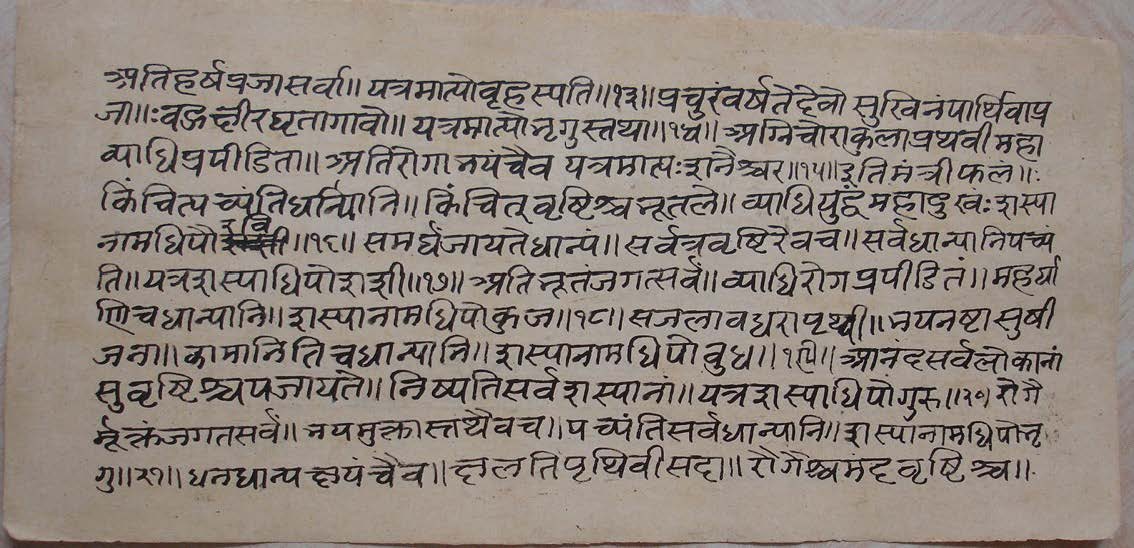 अतिहर्षप्रजासर्वा॥ यत्रमात्योवृहस्पति॥१३॥ प्रचुरंवर्षतेदेवो सुखिनंपार्थिवाप्र
जा॥ःवहुक्षीरघृतागावो॥ यत्रमात्योभृगुस्तथा॥१४॥ अग्निचोराकुलाप्रथवी महा
व्याधिप्रपीडिता॥ अतिरोगाभयंचैव यत्रमात्यःशनैश्चर॥१५॥इतिमंत्रीफलं॥ः
किंचित्पच्यंतिधान्यानि॥ किंचित्वृष्टिश्चभूतले॥ व्याधियुद्धंमहादुखंः शस्या
नामधिपौरवि॥१६॥ समर्घजायतेधान्यं॥ सर्वत्रवृष्टिरैवच॥ सर्वधान्यानिपच्यं
ति॥यत्रशस्याधिपोशशी॥१७॥ अतिभूतंजगत्सर्वं॥ व्याधिरोगप्रपीडितं॥ महर्घा
णिचधान्यानि॥ शस्यानामधिपोकुज॥१८॥ सजलावधरापृथ्वी॥ भयनष्टासुषी
जना॥ कामानितिचधान्यानि॥ शस्यानामधिपोवुध॥।१९॥ आनंदसर्वलोकानां
सुवृष्टिश्चपजायते॥ निष्पतिसर्वशस्यानां॥ यत्रशस्याधिपोगुरु॥२०॥ रोगै
र्मूक्तंजगतसर्वं॥ भयमुक्तास्तथैवच॥ पच्यंतिसर्वधान्यानि॥ शस्यानामधिपोभृ
गु॥२१॥ धनधान्यक्षयंचैव॥ क्षलतिपृथिवीसदा॥ रोगैश्चमंदवृष्टिश्च॥।